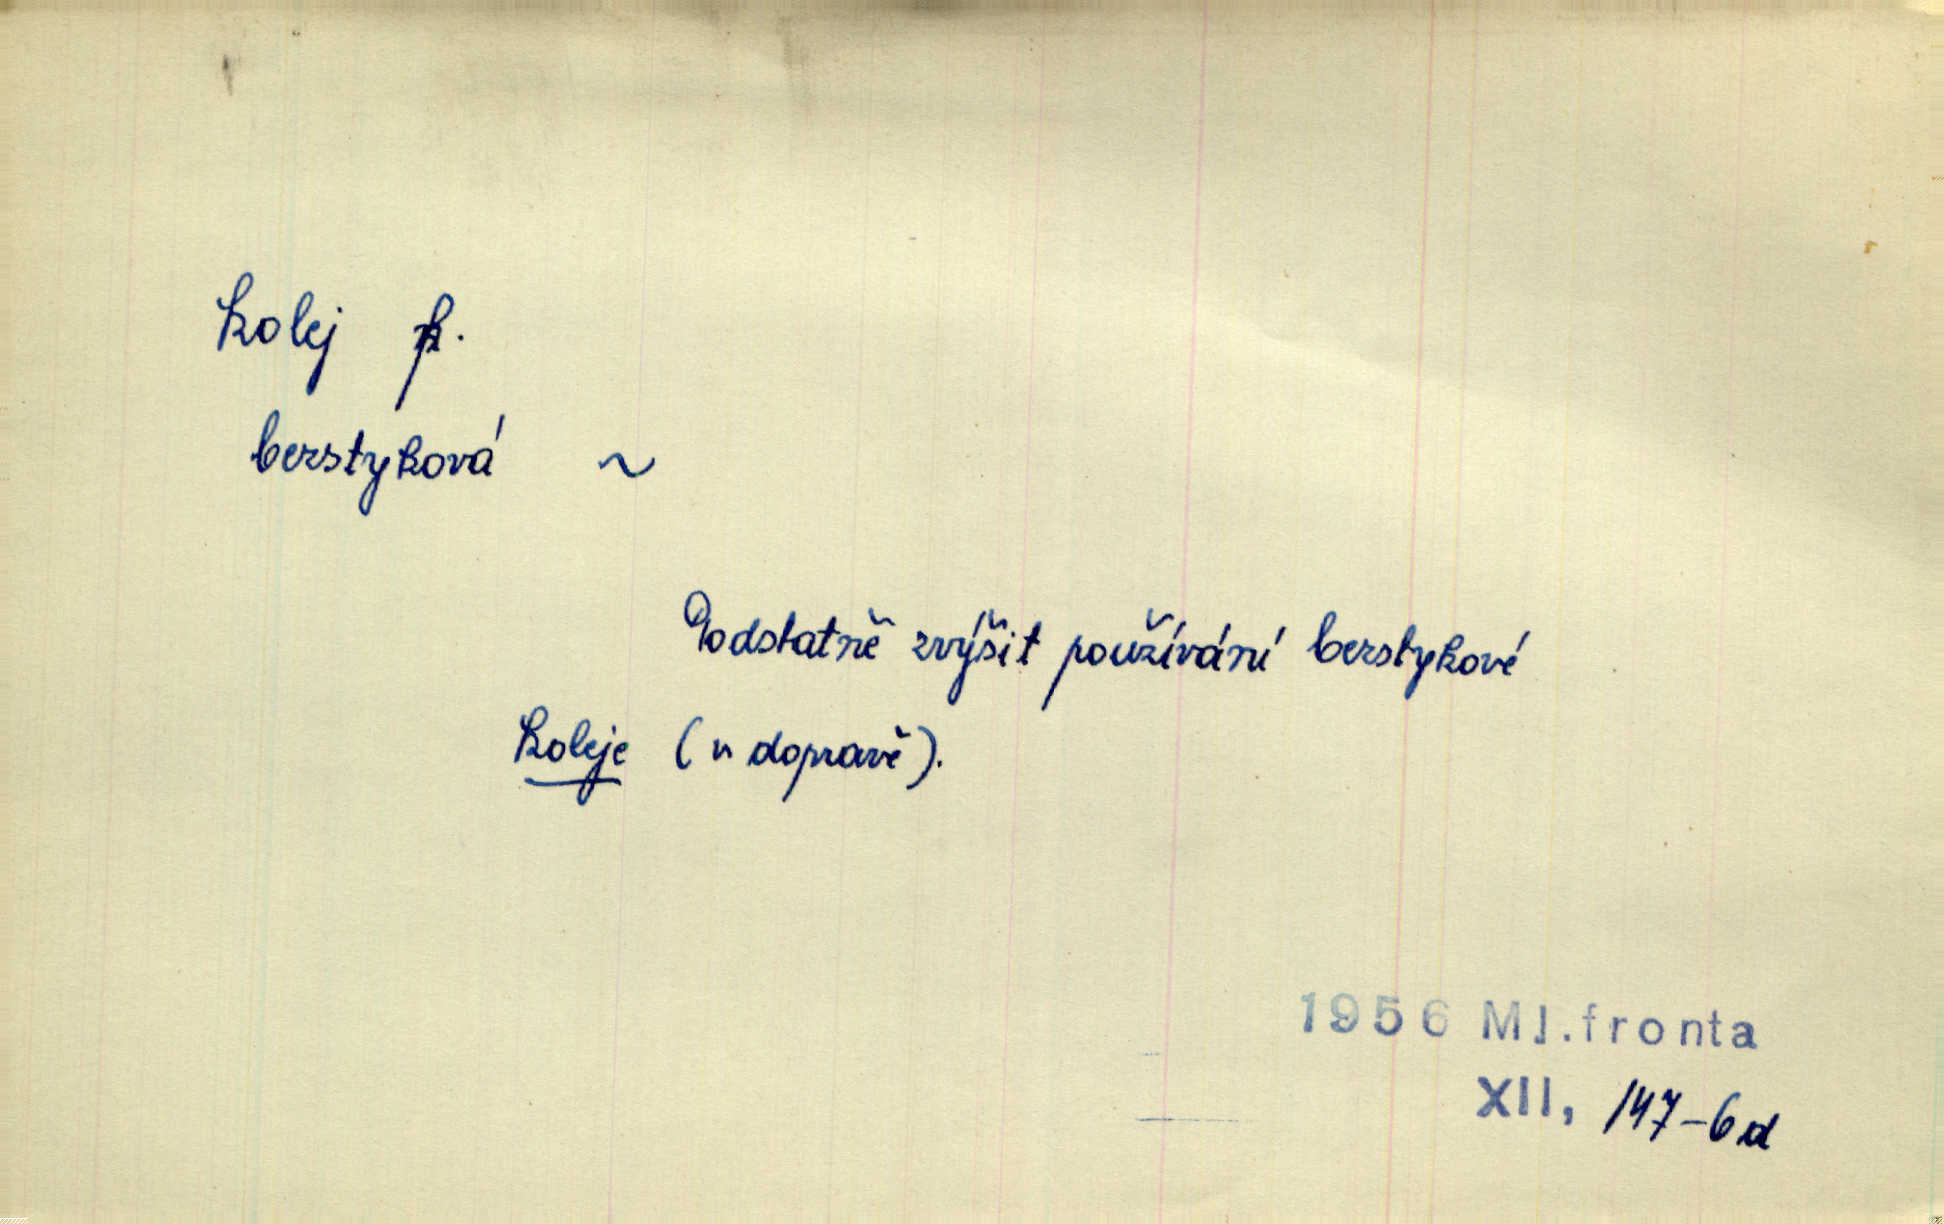 kolej f.
bezstyková ~
Podstatně zvýšit používání bezstykové
koleje (v dopravě).
1956 Ml.fronta
XII, 147-6d